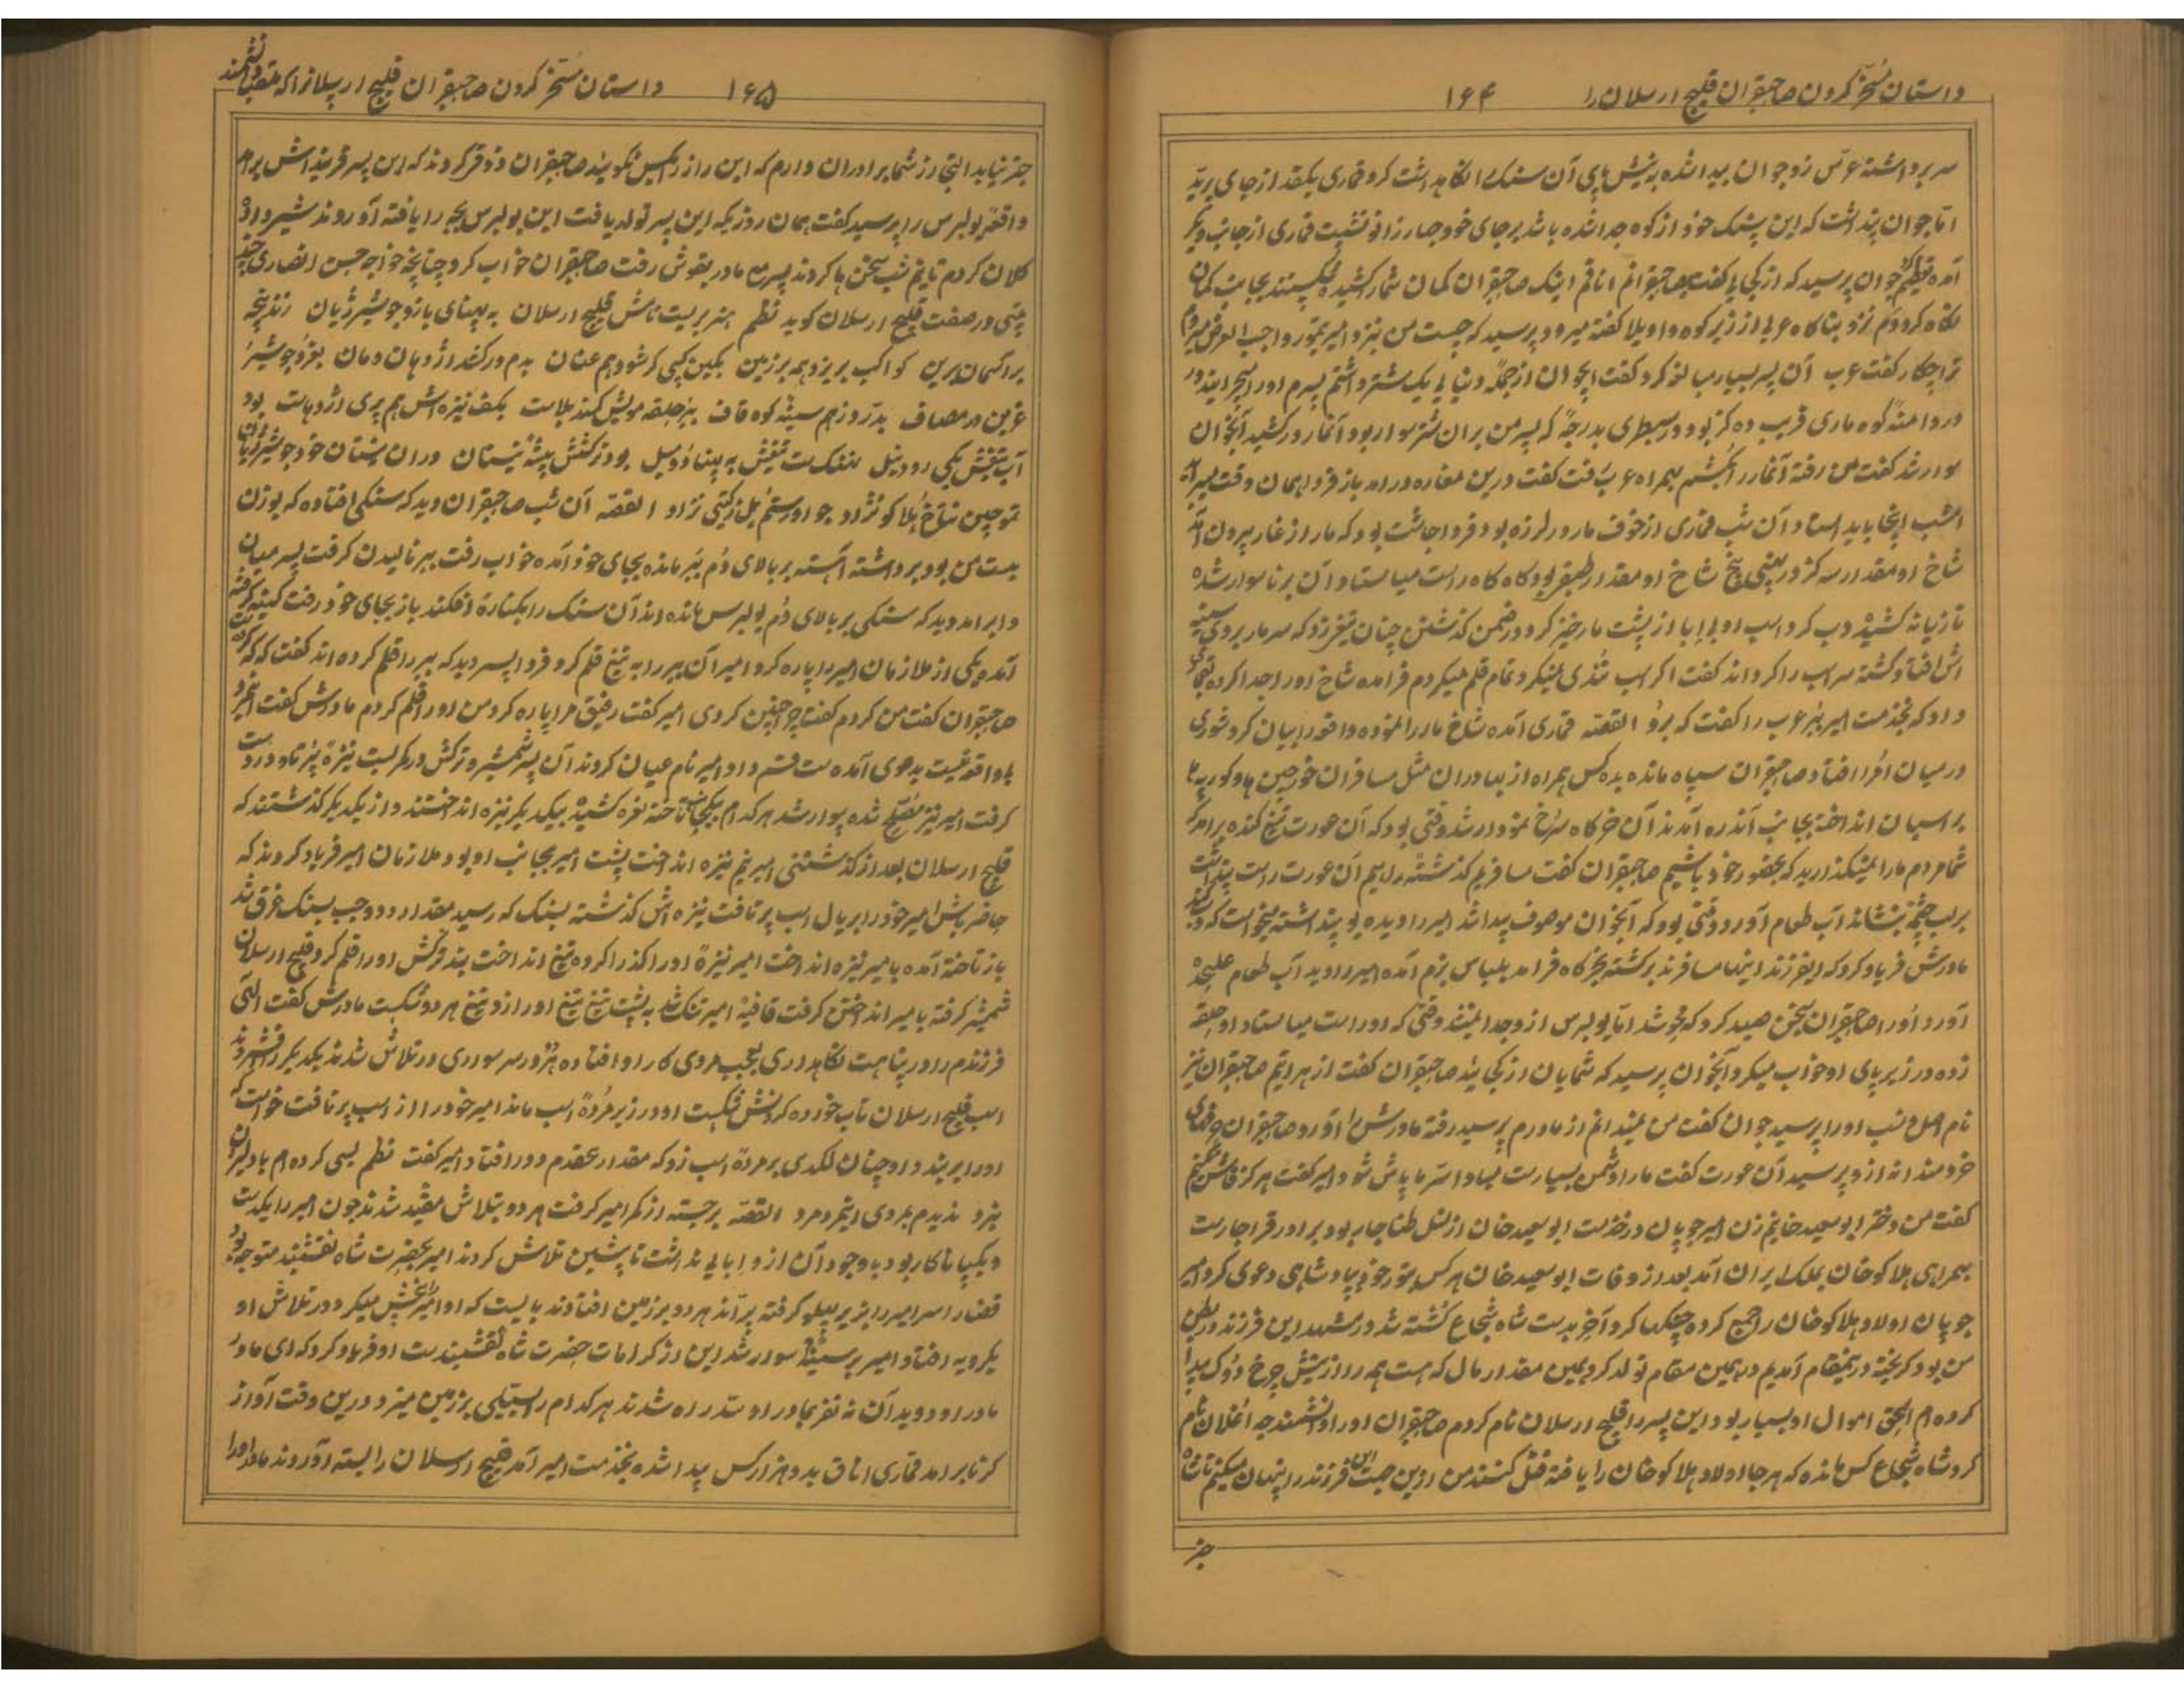 داستان مسخر کردن صاحبقران قلیج ارسلان را ۱۶۴
سر برداشته جوان پیدا شده پیش پای آن سنک نکاهداشت کرد قماری یکقد از جای پرید
اما جوان پنداشت که این سنک خود از کوه جدا شده باشد بر جای خود چهار زانو نشست قماری از جانب دیکر
آمده تعظیم کرد جوان پرسید که از کجایی کفت صاحبقرانم اینک صاحبقران کمان شمار کشیده بجانب کمان
نکاه کرد دوم نزد ناکاه عربی از زیر کوه واویلا کفته میرود پرسید که چیست من نزد امیر تیمور واجب العرض میروم
ترا چکار کفت عرب آن پسر بسیار مبالغه کرد کفت ایجوان از جمله دنیا یک شتر داشتم پسرم اورا میچرانید در
در دامنه کوه ماری قریب ده کز بود در سطبری بدرجه که پسر من بر آن شتر سوار بود آنمار در کشید آنجوان
سوار شد کفت من رفته آنمار را بکشم همراه عرب رفت کفت درین مغاره درآمد باز فردا همان وقت میبراید
امشب اینجا باید استاد آن شب قماری از خوف مار در لرزه بود فردا چاشت بود که مار از غار بیرون آمد
شاخ او مقدار سه کز در یعنی پنج شاخ او مقدار طبق بود کاه کاه راست میاستاد آن برنا سوار شده
تازیانه کشیده دب کرد اسب او بی ابا از پشت مار خیز کرد در ضمن کذشتن چنان تیغ زد که سر مار بر روی سینه
اش افتاد کشته سر اسب را کرداند کفت اکر اسب تندی نمیکرد تمام قلم میکردم فرامده شاخ اورا جدا کرده بقماری
داد که بخدمت امیر ببر عرب را کفت که برو القصه قماری آمده شاخ مار را نموده واقعه را بیان کرد شوری
در میان امرا افتاد صاحبقران سپاه مانده به ده کس همراه از بهادران مثل مسافران خورجین ها و کورپه ها
بر اسپان انداخته بجانب آندره آمدند آن خرکاه سرخ نمودار شد وقتی بود که آن عورت تیغ کنده برامد که
شما مردم مارا نمیکذارید که بحضور خود باشیم صاحبقران کفت مسافریم کذشته میرویم آن عورت راست پنداشت
بر لب چشمه بنشاند آب طعام آورد وقتی بود که آنجوان موصوف پیدا شد امیر را دیده یو پنداشته میخواست که
مادرش فریاد کرد که ایفرزند اینها مسافرند برکشته بخرکاه فرامد بلباس بزم آمده امیر را دید آب طعام علیحده
آورد اورا صاحبقران بسخن صید کرد که خوشد اما یولبرس از وجدا نمیشد وقتی که او راست میاستاد او حلقه
زده در زیر پای او خواب میکرد آنجوان پرسید که شمایان از کجایید صاحبقران کفت از هراتیم صاحبقران نیز
نام اصل و نسب اورا پرسید جوان کفت من نمیدانم از مادرم پرسید رفته مادرش را آورد صاحبقران
خردمندانه از و پرسید آن عورت کفت مارا دشمن بسیارست مبادا سر ما پاش شود امیر کفت هرکز فاش نمیکنیم
کفت من دختر ابوسعید خانم زن امیر چوپان در خدمت ابوسعید خان از نسل طغاجار بود برادر قراجارست
بهمراهی هلاکو خان بملک ایران آمد بعد از وفات ابوسعید خان هر کس بتوز خود پادشاهی دعوی کرد امیر
چوپان اولاد هلاکو خان را جمع کرده جنکها کرد آخر بدست شاه شجاع کشته شد در مشهد این فرزند در بطن
من بود کریخته درینمقام آمدیم در همین مقام تولد کرد همین مقدار مال که هست همه را از ریش چرخ دوک پیدا
کرده ام الحق اموال او بسیار بود این پسر را قلیج ارسلان نام کردم صاحبقران اورا دانشمندچه اغلان نام
کرد شاه شجاع کس مانده که هر جا اولاد هلاکو خان را یافته قتل کنند من ازین جهت این فرزند را پنهان میکنم تا شاه
جز
داستان مسخر کردن صاحبقران قلیج ارسلانرا که ملقب بدانشمند ۱۶۵
جز نیابد التجا از شما برادران دارم که این راز را بکس نکویید صاحبقران ذوق کردند که این پسر فرینداش برامد
واقعه یولبرس را پرسید کفت همان روزیکه این پسر تولد یافت این یولبرس بچه را یافته آوردند شیر داده
کلان کردم تا نیم شب سخن ها کردند پسر مع مادر بقوش رفت صاحبقران خواب کرد چنانچه خواجه حسن انصاری چند
بیتی در صفت قلیج ارسلان کوید نظم هنربریست نامش قلیج ارسلان به پهنای بازو چو شیر ژیان زند پنجه
بر آسمان برین کواکب بریزد همه بر زمین بکین کسی کر شود هم عنان بدم در کشد اژدهای دمان بغرد چو شیر
عرین در مصاف بدرد ز هم سینه کوه قاف بهر حلقه مویش کمند بلاست بکف نیزه اش همسری اژدهاست بود
آب تیغش یکی رود نیل نهنکست تیغش به پهنا دو میل بود ترکشش بیشه نیستان در آن بیشتان خود چو شیر ژیان
تموچین نتاخ هلاکو نژاد چو او رستم یل ز کیتی نزاد القصه آن شب صاحبقران دید که سنکی افتاده که بوزن
بیست من بود برداشته آهسته بر بالای دم ببر مانده بجای خود آمده خواب رفت ببر نالیدن کرفت پسر میان
وا برامد دید که سنکی بر بالای دم یولبرس مانده اند آن سنک را بکناره افکند باز بجای خود رفت
آمده یکی از ملازمان امیر را پاره کرد امیر آن ببر را به تیغ قلم کرد فردا پسر دید که ببر را قلم کرده اند کفت که کرده
صاحبقران کفت من کردم کفت چرا چنین کردی امیر کفت رفیق مرا پاره کرد من اورا قلم کردم مادرش کفت
یا واقعیت بدعوی آمده ست قسم داد امیر نام عیان کردند آن پسر شمشیر و ترکش در کمر بست نیزه پرتاو در دست
کرفت امیر نیز مصلح شده سوار شد هر کدام بیکجانب تاخته نعره کشیده بیکدیکر نیزه انداختند و از یکدیکر کذشتند که
قلیج ارسلان بعد از کذشتنی امیر نیم نیزه انداخت پشت امیر بجانب او بود ملازمان امیر فریاد کردند که
حاضر باش امیر خود را بر یال اسب پرتافت نیزه اش کذشته بسنک که رسید مقدار دو وجب بسنک غرق شد
باز تاخته آمده با میر نیزه انداخت امیر نیزه اورا کذرا کرده تیغ انداخت بند ترکش اورا قلم کرد قلیج ارسلان
شمشیر کرفته با میر انداختن کرفت قافیه امیر تنک شد به پشت تیغ تیغ اورا زد تیغ هر دو شکست مادرش کفت الهی
فرزندم را در پناهت نکاهداری بعجب مردی کار او افتاده هنوز سر سواری در تلاش شدند یکدیکر را فشردند
اسب قلیج ارسلان تاب خورده کردنش شکست او در زیر مرده اسب ماند امیر خود را از اسب پرتافت خواست که
اورا بر بندد او چنان لکدی بر مرده اسب زد که مقدار صد قدم دور افتاد امیر کفت نظم بسی کرده ام با دلیران
نبرد ندیدم بمردی اینمرد مرد القصه برجسته از کمر امیر کرفت هر دو بتلاش مقید شدند چون امیر را یکدست
و یکپا ناکار بود باوجود آن از و ابایی نداشت تا پیشین تلاش کردند امیر بحضرت شاه نقشبند متوجه بود
قضارا سر امیر را بزیر پهلو کرفته پراند هر دو بر زمین افتادند بایست که او امیر را بخش میکرد در تلاش او
یکرویه افتاد امیر بر سینه اش سوار شد این از کرامات حضرت شاه نقشبندست او فریاد کرد که ای مادر
مادر او دوید آن نه نفر بمادر او سد راه شدند هر کدام را بسیلی بر زمین میزد درین وقت آواز
کرنا برامد قماری اناق به دو هزار کس پیدا شده بخدمت امیر آمد قلیج ارسلان را بسته آوردند مادر اورا